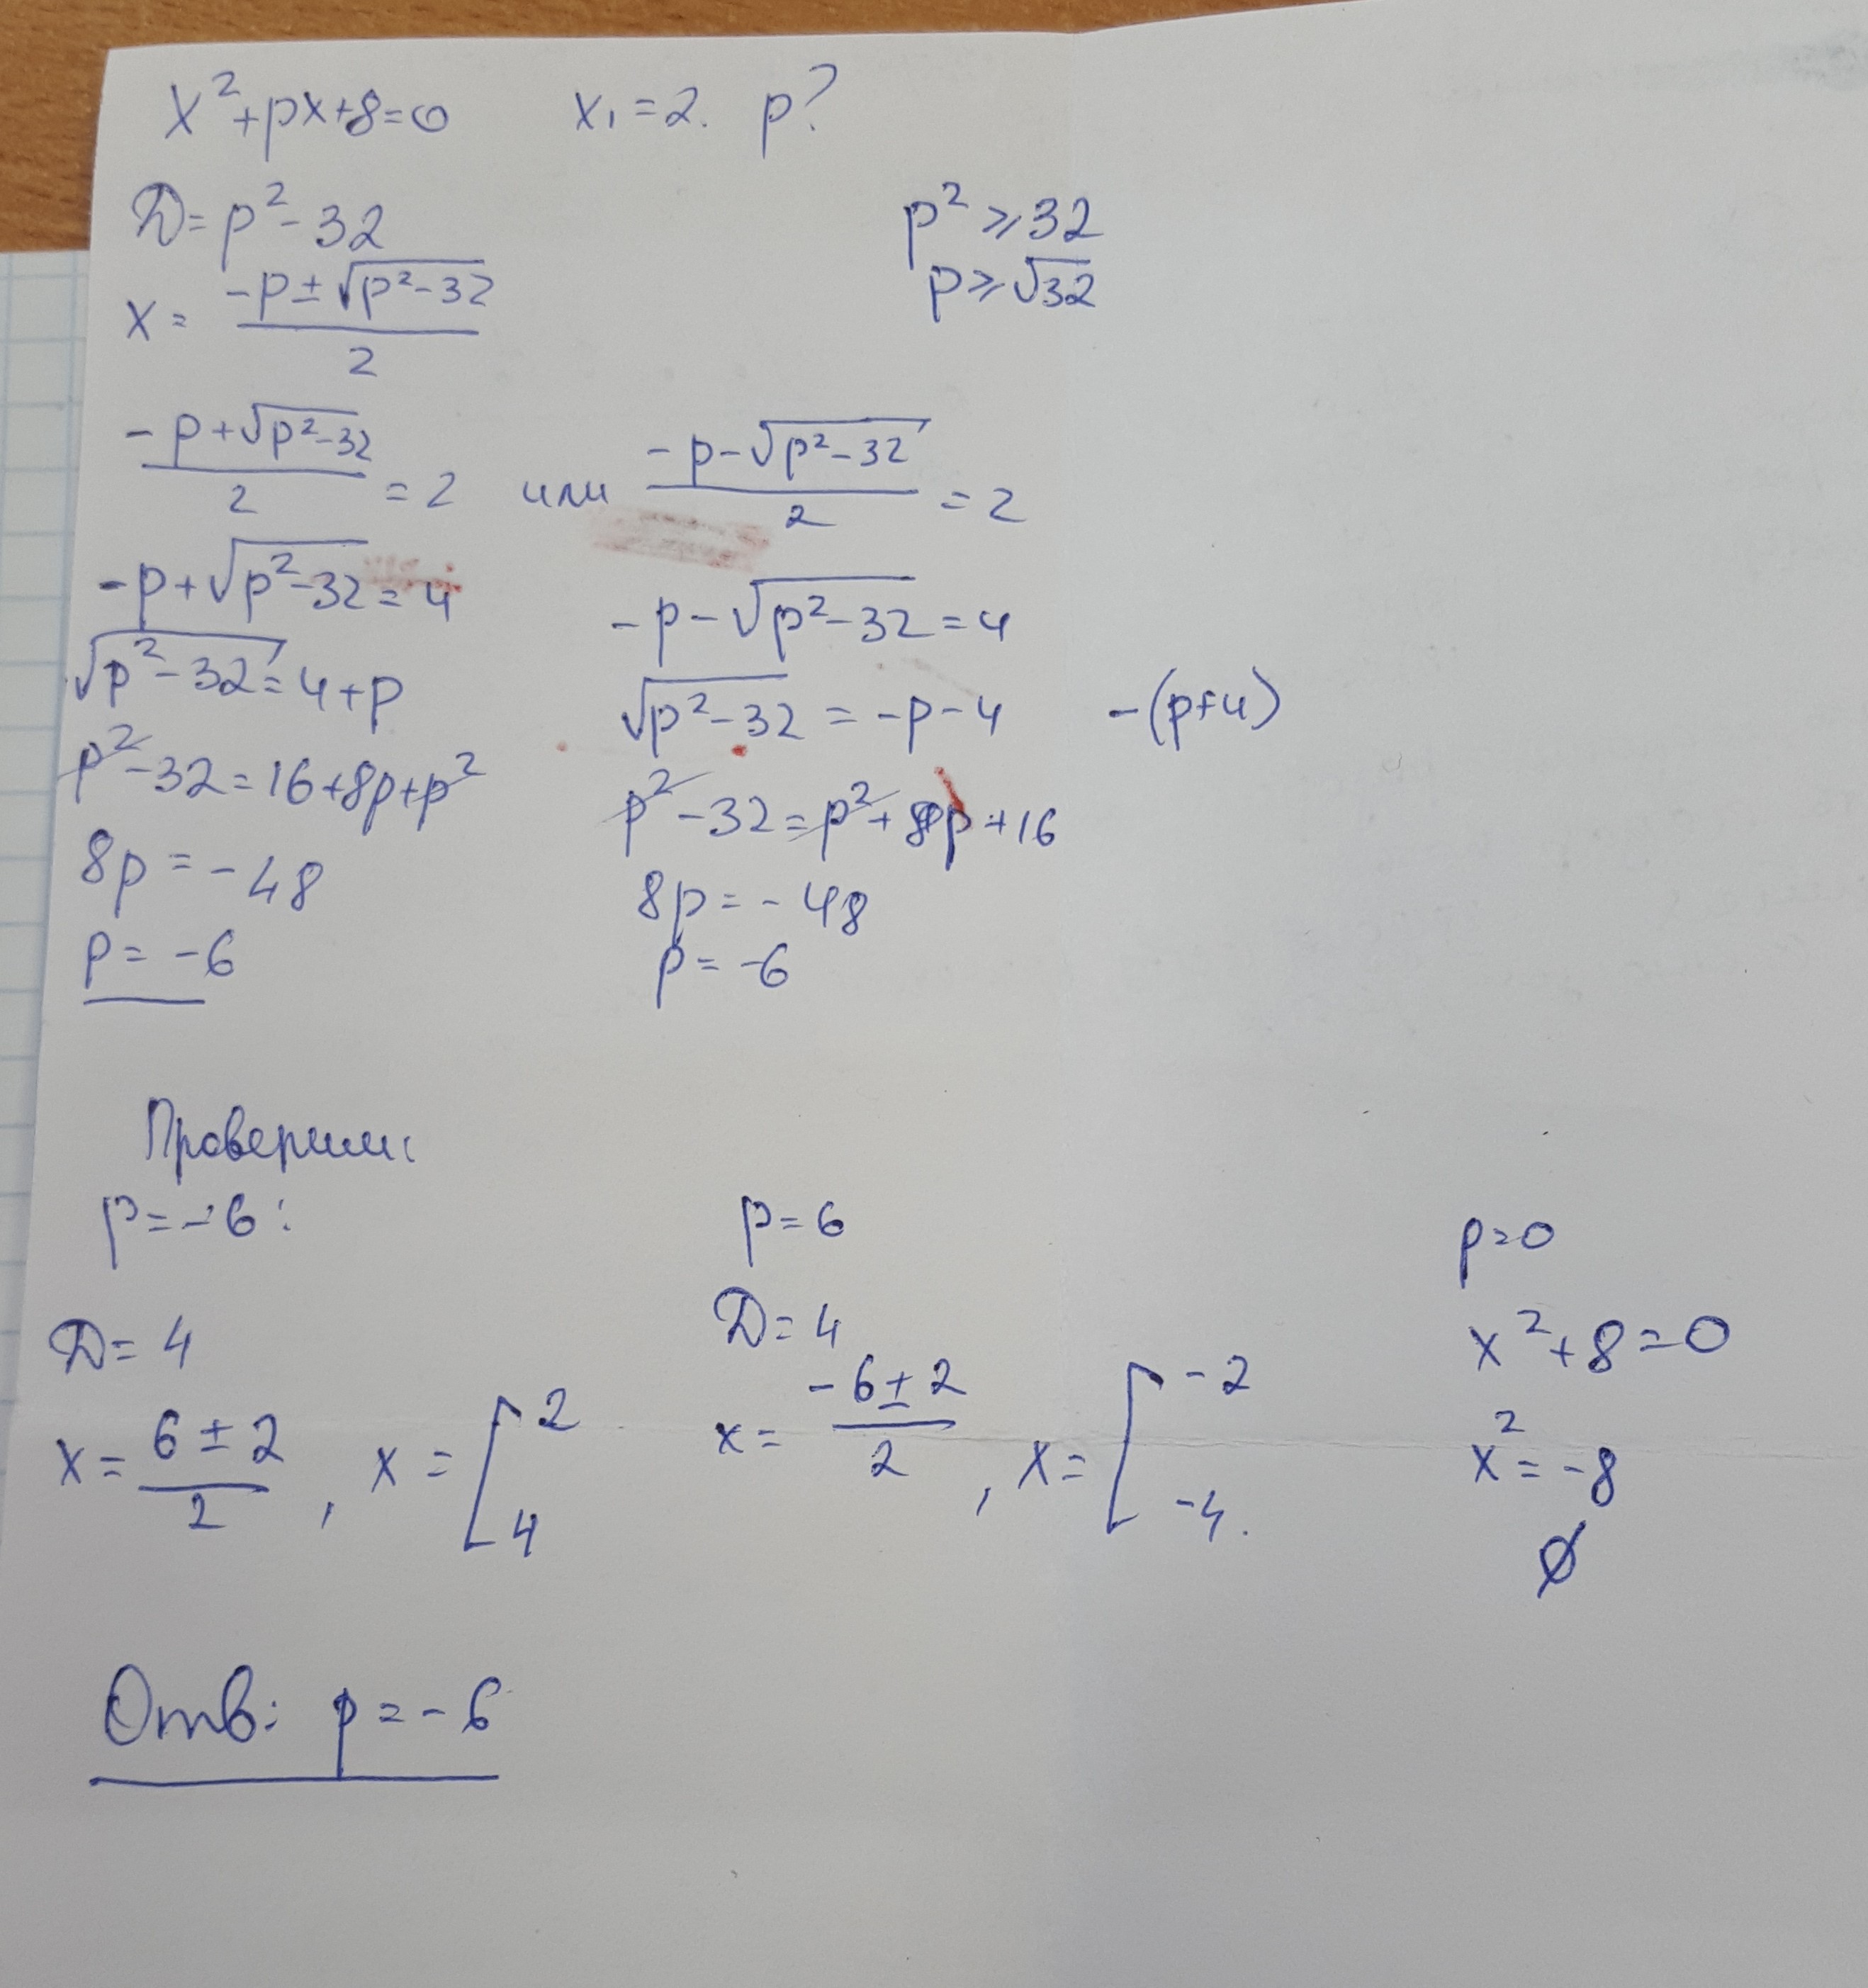 x²+px+8=0 x₁=2. p?
D=p²-32 p²⩾32
x= (-p±√(p²-32))/2 p⩾√32
(-p+√(p²-32))/2 =2 или (-p-√(p²-32))/2 =2
-p+√(p²-32)=4 -p-√(p²-32)=4
√(p²-32)=4+p √(p²-32) = -p-4 -(p+4)
p²-32=16+8p+p² p²-32=p²+8p+16
8p=-48 8p=-48
p=-6 p=-6
Проверим:
p=-6: p=6 p=0
D=4 D=4 x²+8=0
x= (6±2)/2 , x=[2 4 x= (-6±2)/2 , x=[-2 -4. x²=-8
∅
Отв: p=-6